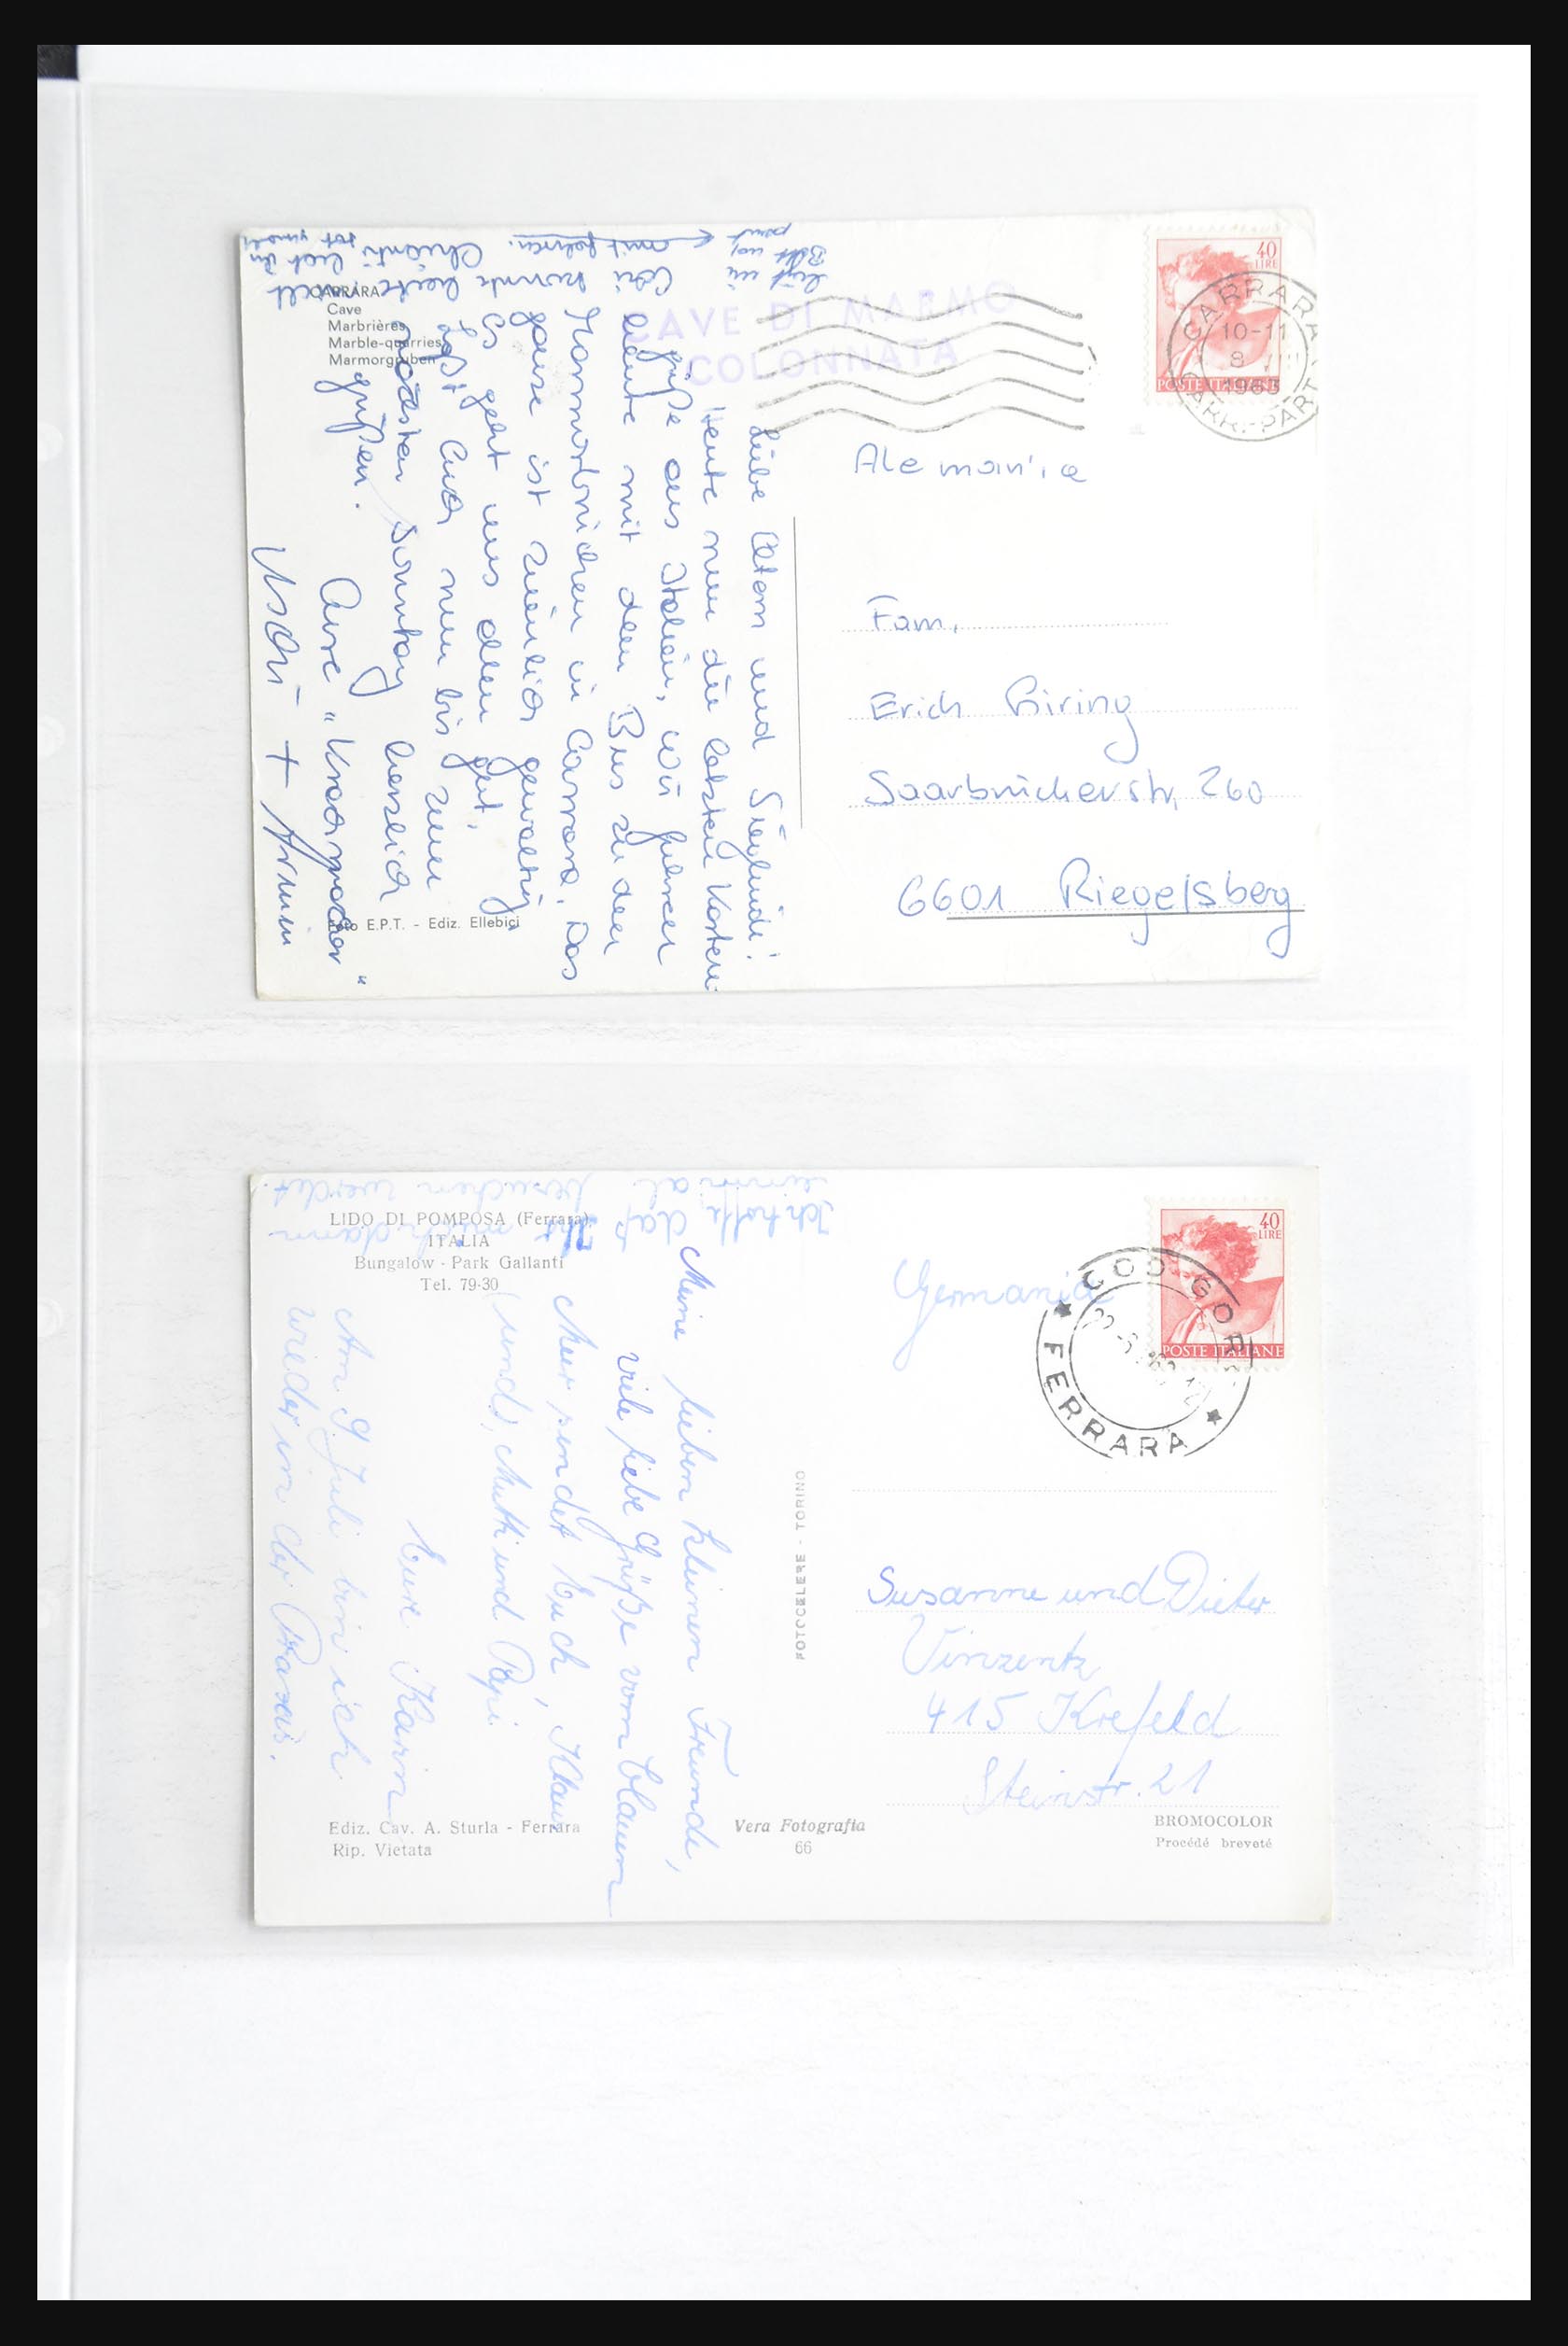 CARRARA
Cave
Marbrières
Marble-quarries
Marmorgruben
CAVE DI MARMO
COLONNATA
40
LIRE
POSTE ITALIANE
CARRARA
10-11
8
CARR-PART
Alemania
Fam.
Erich Giring
Saarbrückerstr. 260
6601 Riegelsberg
Liebe Eltern und Sieglinde!
Heute nun die letzten Karten
grüße aus Italien, wir fahren
heute mit dem Bus zu den
Marmorbrüchen in Carrara. Das
ganze ist ziemlich gewaltig
Es geht uns allen gut.
Laßt Euch nun bis zum
nächsten Sonntag herzlich
grüßen.
Eure
Uschi + Armin
Foto E.P.T. - Ediz. Ellebici
LIDO DI POMPOSA (Ferrara)
ITALIA
Bungalow - Park Gallanti
Tel. 79-30
40
LIRE
POSTE ITALIANE
FERRARA
Germania
Meine lieben kleinen Freunde,
viele liebe Grüße vom blauen
Meer sendet Euch, Klaus
und, Mutti und Papi
Eure Karin
Am 9 Juli bin ich
wieder in der Praxis.
Ich hoffe daß
einmal
besuchen werdet
FOTOCELERE - TORINO
Susanne und Dieter
Vinzentz
415 Krefeld
Steinstr. 21
Ediz. Cav. A. Sturla - Ferrara
Rip. Vietata
Vera Fotografia
66
BROMOCOLOR
Procédé breveté